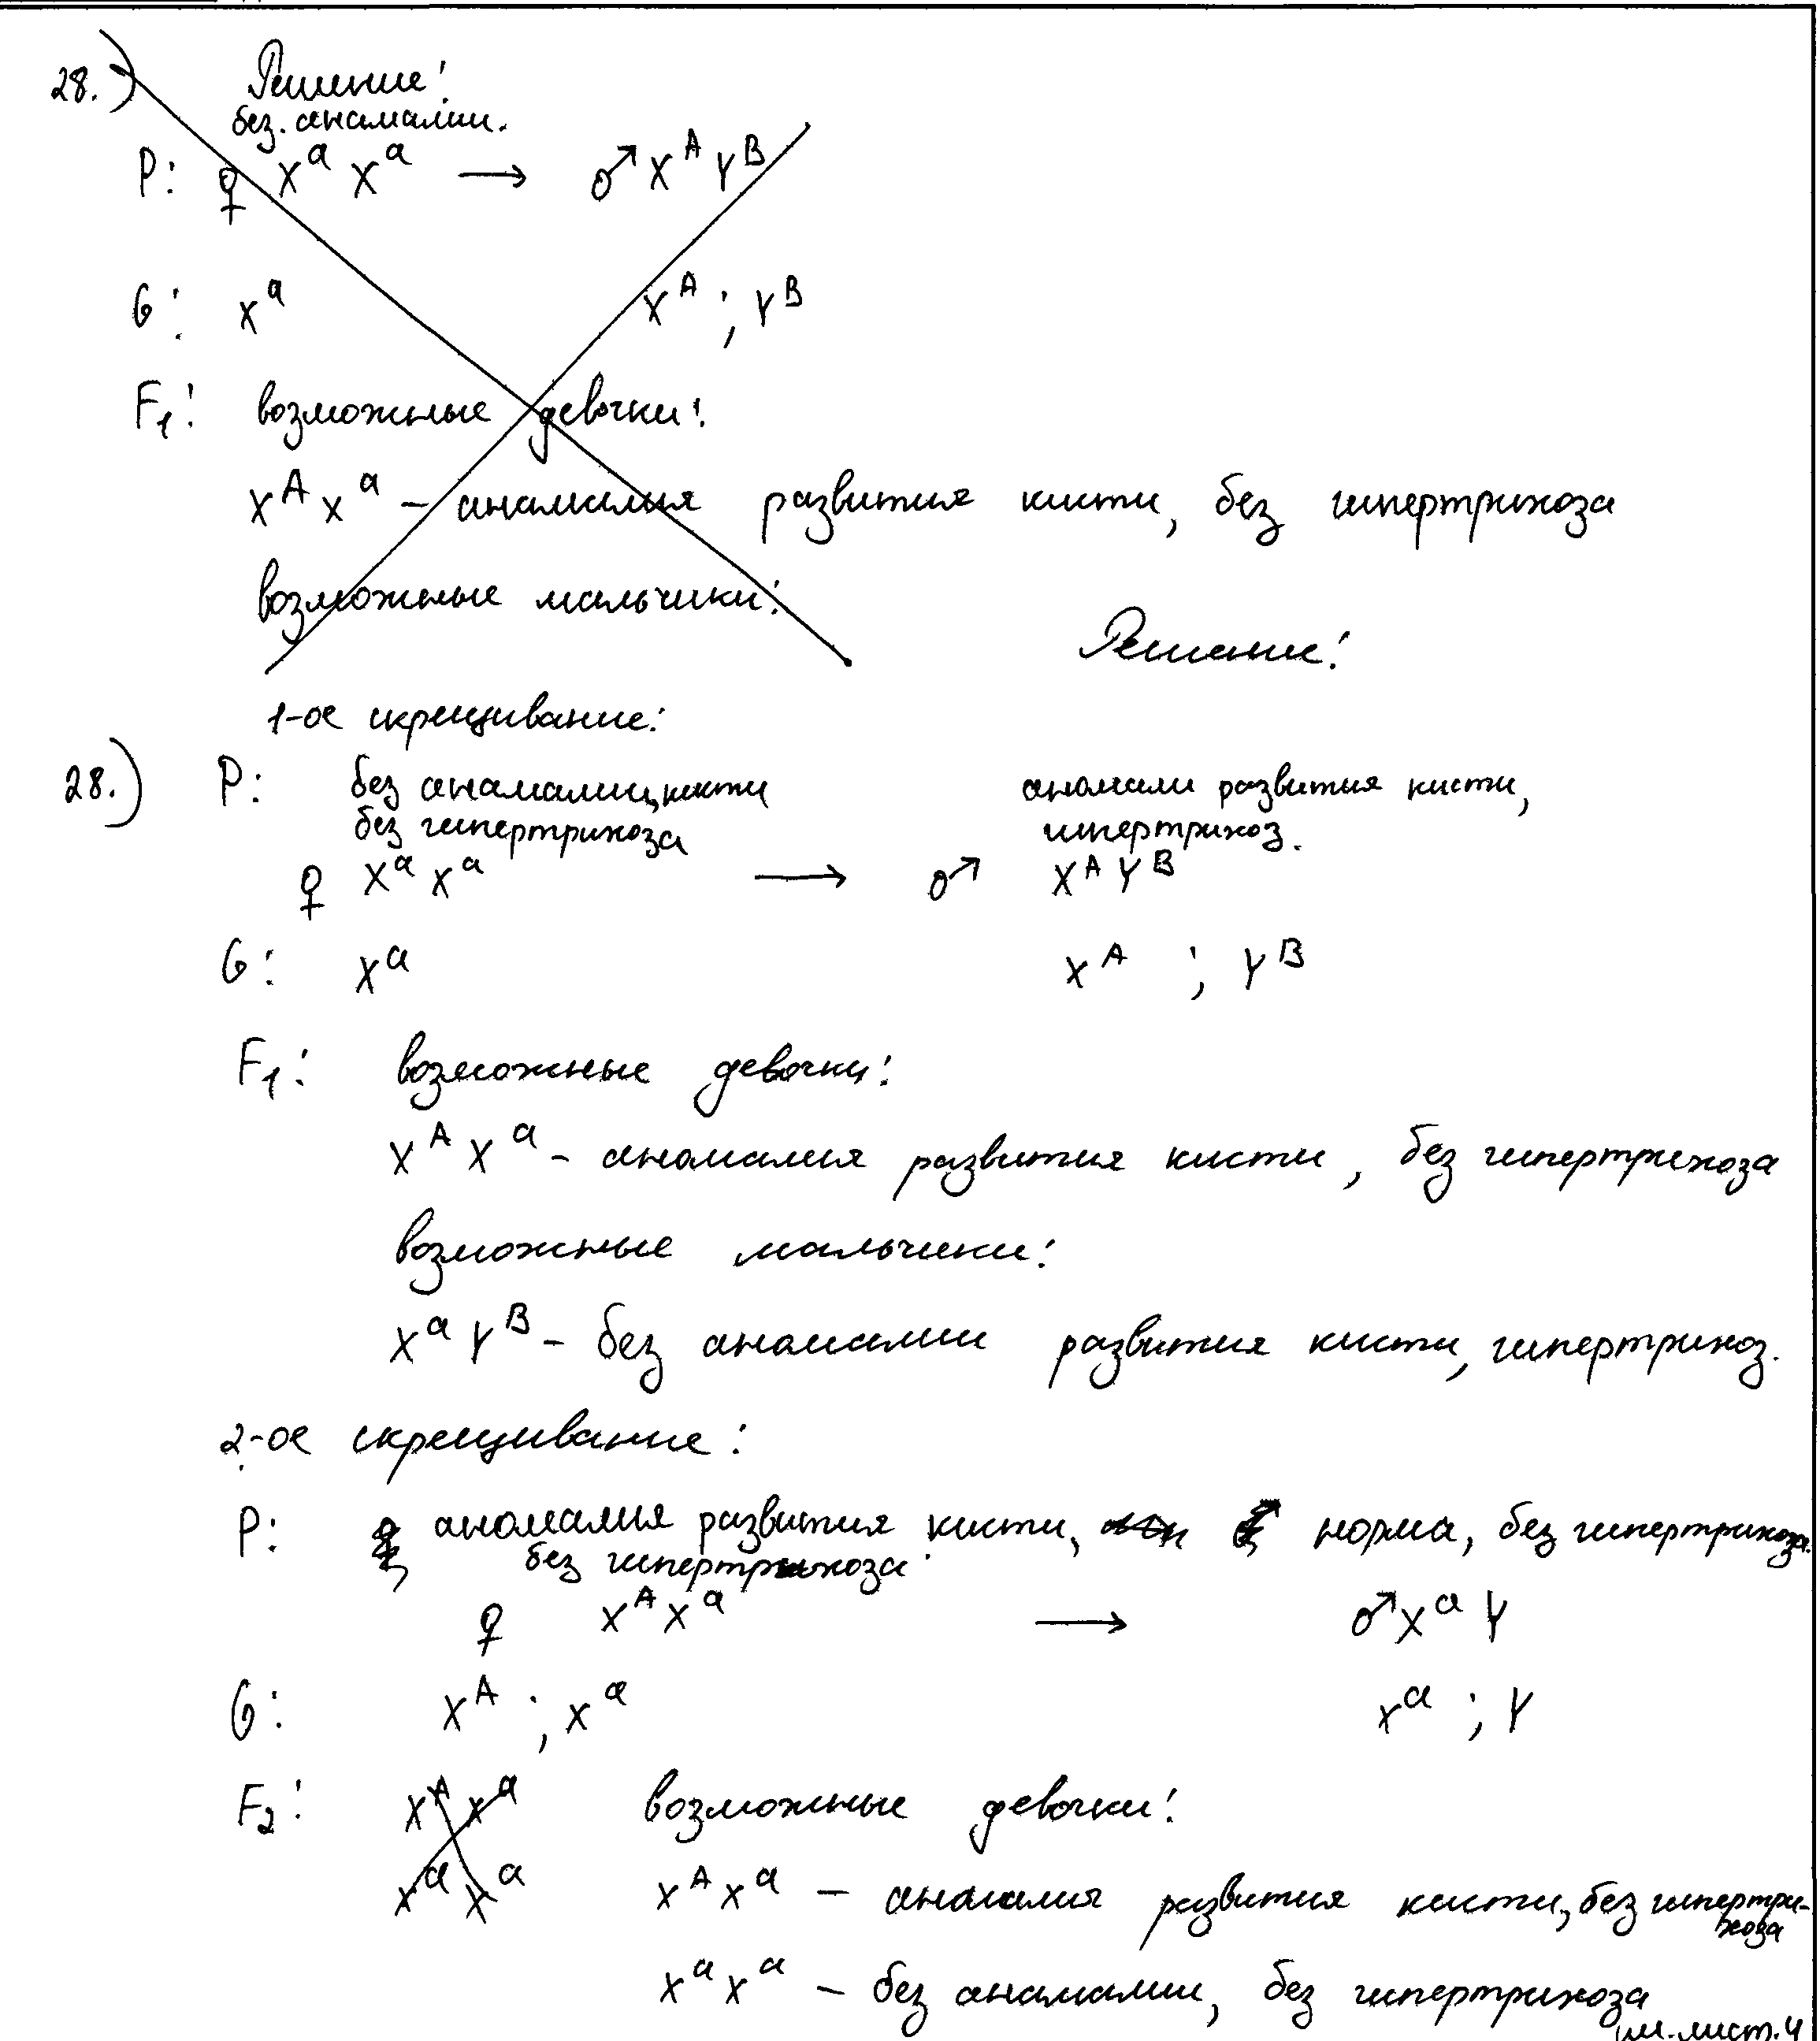 28.) Решение:
без. анамалии.
P: ♀ Xᵃ Xᵃ → ♂ Xᴬ Yᴮ
G: Xᵃ Xᴬ ; Yᴮ
F₁: возможные девочки:
Xᴬ Xᵃ – анамалия развития кисти, без гипертрихоза
возможные мальчики:
Решение:
1-ое скрещивание:
28.) P: без анамалии, кисти аномали развития кисти,
без гипертрихоза гипертрихоз.
♀ Xᵃ Xᵃ → ♂ Xᴬ Yᴮ
G: Xᵃ Xᴬ ; Yᴮ
F₁: возможные девочки:
Xᴬ Xᵃ – аномалия развития кисти, без гипертрихоза
возможные мальчики:
Xᵃ Yᴮ – без аномалии развития кисти, гипертрихоз.
2-ое скрещивание:
P: аномалия развития кисти, норма, без гипертрихоза.
без гипертрихоза
♀ Xᴬ Xᵃ → ♂ Xᵃ Y
G: Xᴬ ; Xᵃ Xᵃ ; Y
F₂: Xᴬ Xᵃ возможные девочки:
Xᵃ Xᵃ Xᴬ Xᵃ – аналалия развития кисти, без гипертри-
хоза
Xᵃ Xᵃ – без анамалии, без гипертрихоза
см. лист. 4